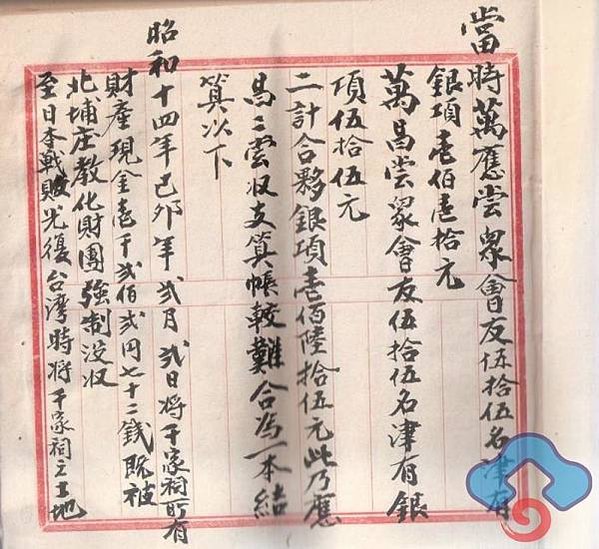 當時萬應尝眾會友伍拾伍名津有
銀項壱佰壱拾元
萬昌尝眾會友伍拾伍名津有銀
項伍拾伍元
二計合夥銀項壱佰陸拾伍元此乃應
昌二尝収支算帳較難合為一本結
算以下
昭和十四年己卯年弍月弍日將千家祠所有
財產現金壱千弍佰弍円七十二錢既被
北埔庄教化財團強制没収
至日本戰敗光復台灣時將千家祠之土地